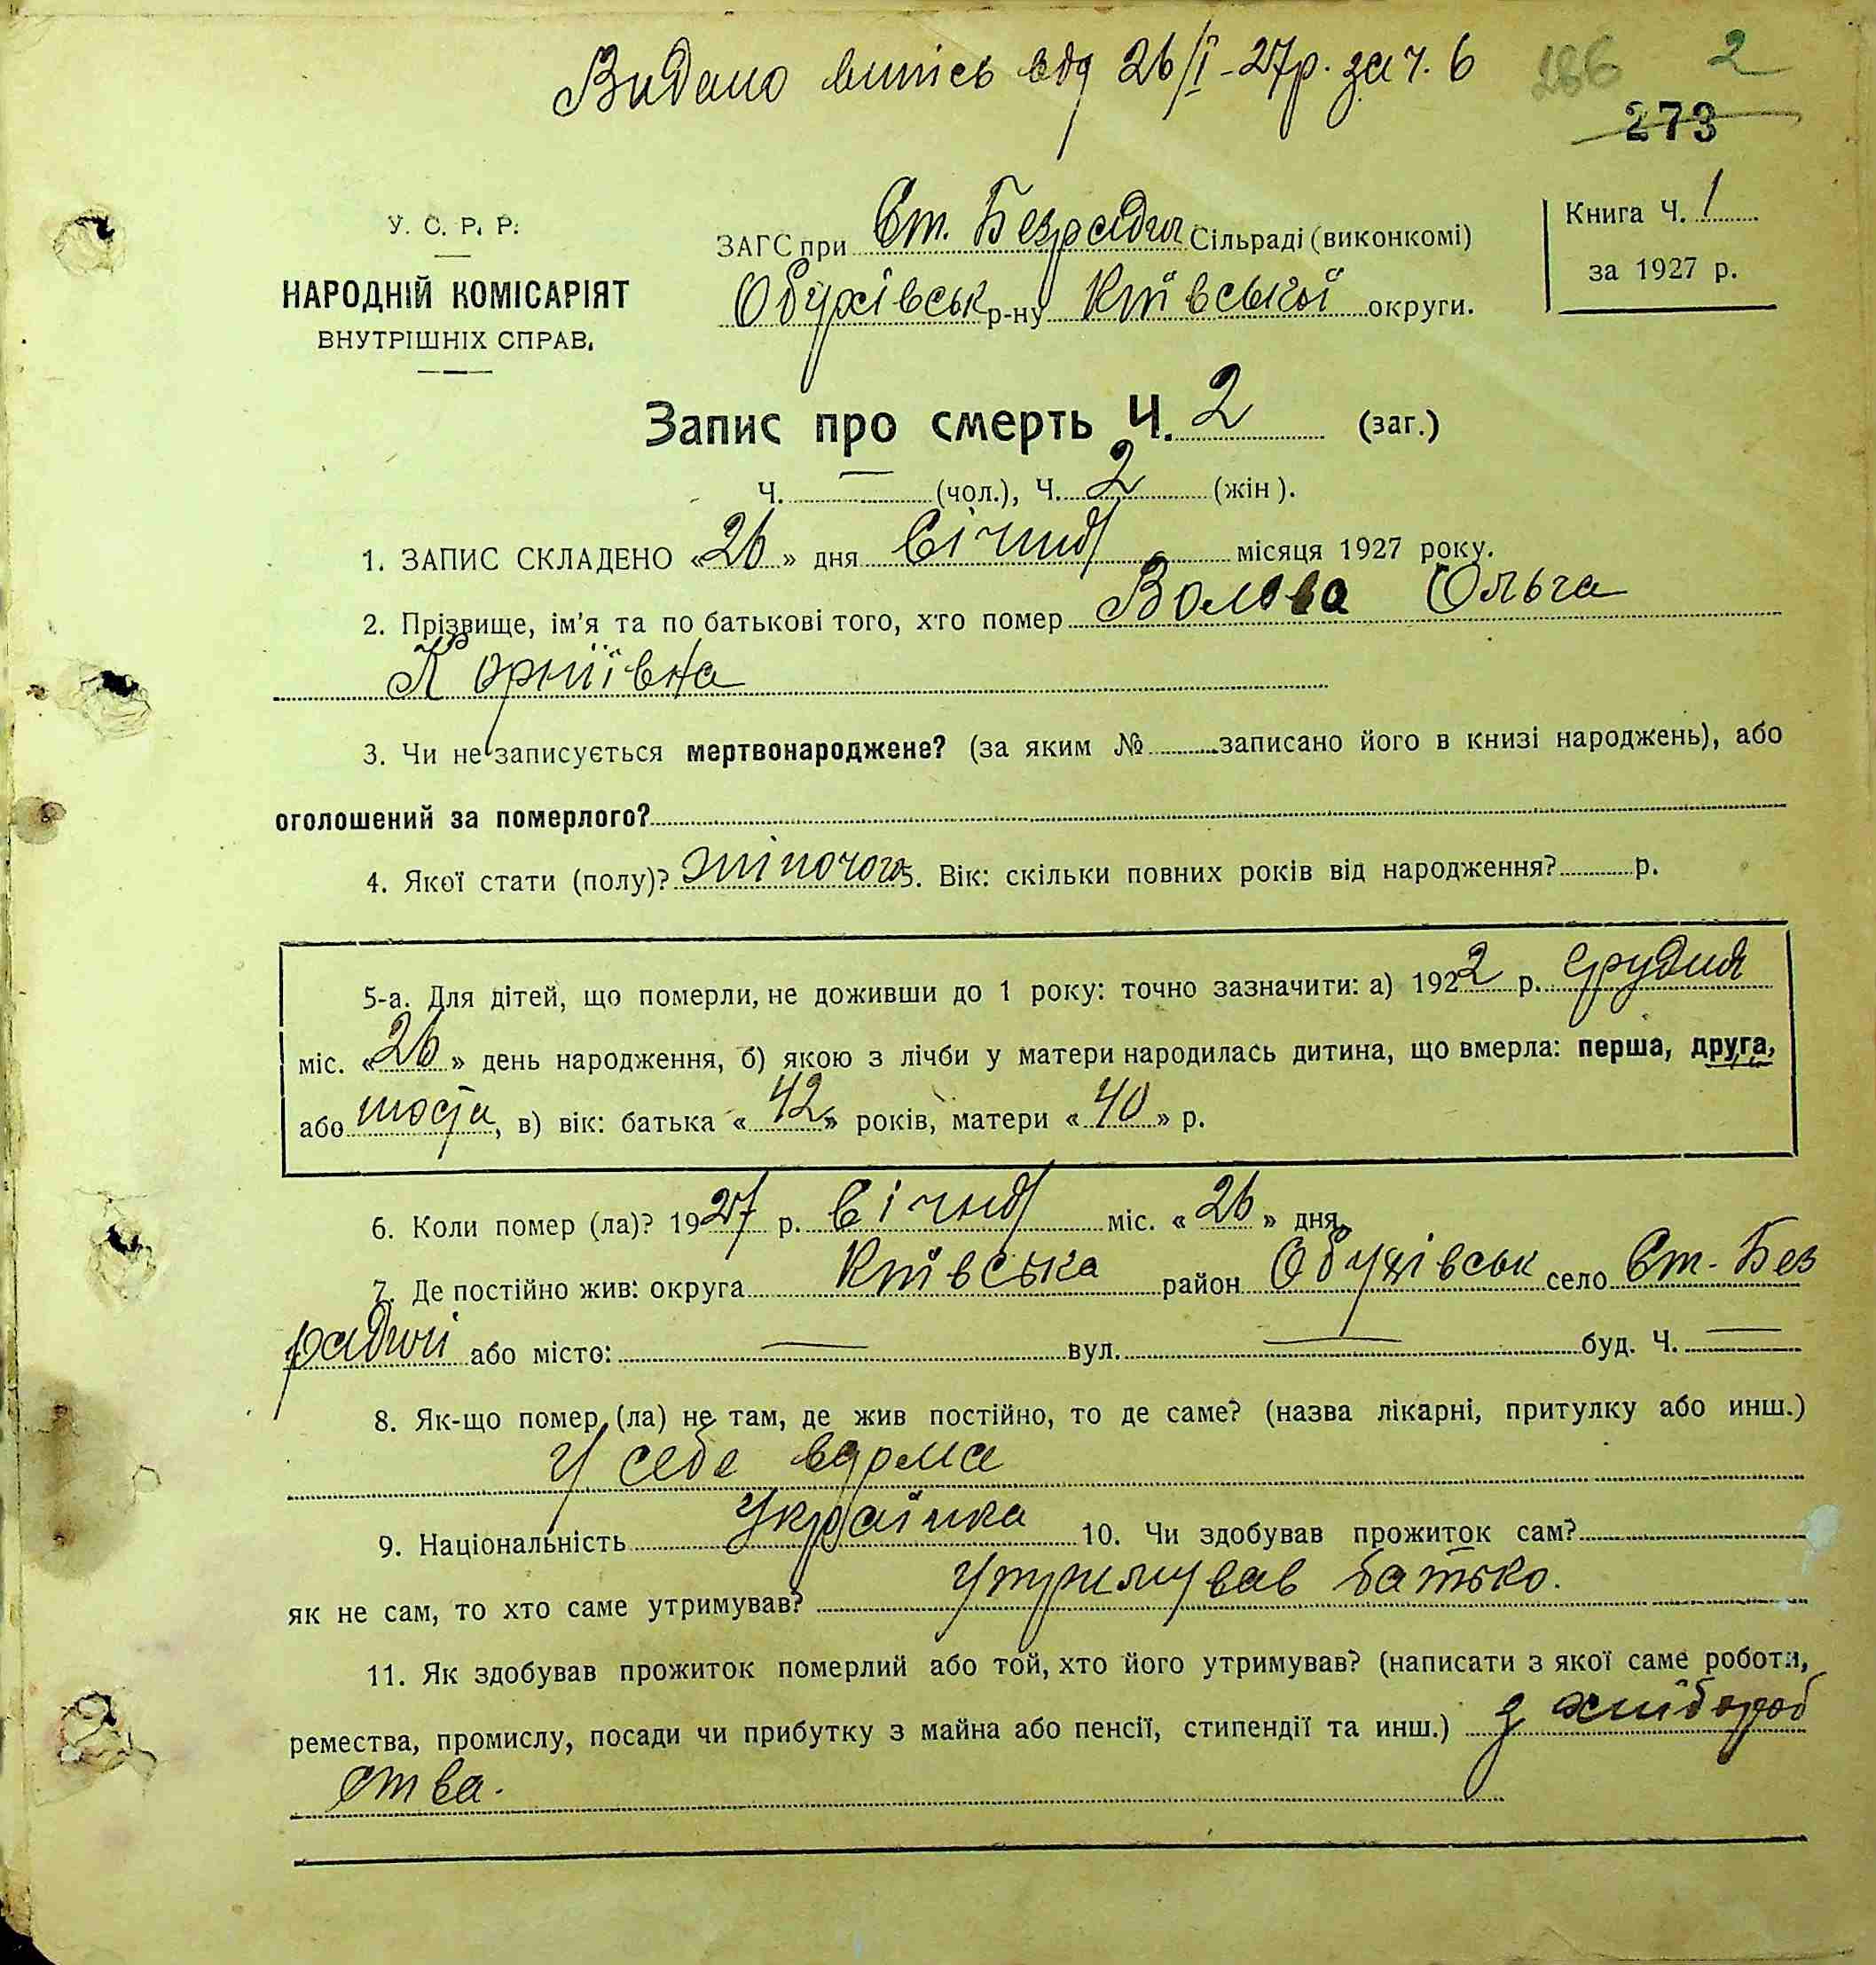 Видано витісь від 26/I-27р. за ч. 6
186 2
273
У. С. Р. Р.
НАРОДНІЙ КОМІСАРІЯТ
ВНУТРІШНІХ СПРАВ.
ЗАГС при Ст. Безрадичі Сільраді (виконкомі)
Обухівськ р-ну Київської округи.
Книга Ч. 1
за 1927 р.
Запис про смерть Ч. 2 (заг.)
Ч. — (чол.), Ч. 2 (жін).
1. ЗАПИС СКЛАДЕНО «26» дня Січня місяця 1927 року.
2. Прізвище, ім'я та по батькові того, хто помер Ольга
Корніївна
3. Чи не записується мертвонароджене? (за яким № записано його в книзі народжень), або
оголошений за померлого?
4. Якої стати (полу)? жіночого 5. Вік: скільки повних років від народження? р.
5-а. Для дітей, що померли, не доживши до 1 року: точно зазначити: а) 1922 р. грудня
міс. «26» день народження, б) якою з лічби у матери народилась дитина, що вмерла: перша, друга,
або шоста, в) вік: батька «42» років, матери «40» р.
6. Коли помер (ла)? 1927 р. Січня міс. «26» дня
7. Де постійно жив: округа Київська район Обухівськ село Ст. Без
радичі або місто: — вул. — буд. Ч. —
8. Як-що помер (ла) не там, де жив постійно, то де саме? (назва лікарні, притулку або инш.)
У себе вдома
9. Національність Українка 10. Чи здобував прожиток сам?
як не сам, то хто саме утримував? Утримував батько.
11. Як здобував прожиток померлий або той, хто його утримував? (написати з якої саме роботи,
ремества, промислу, посади чи прибутку з майна або пенсії, стипендії та инш.) з хлібороб
ства.